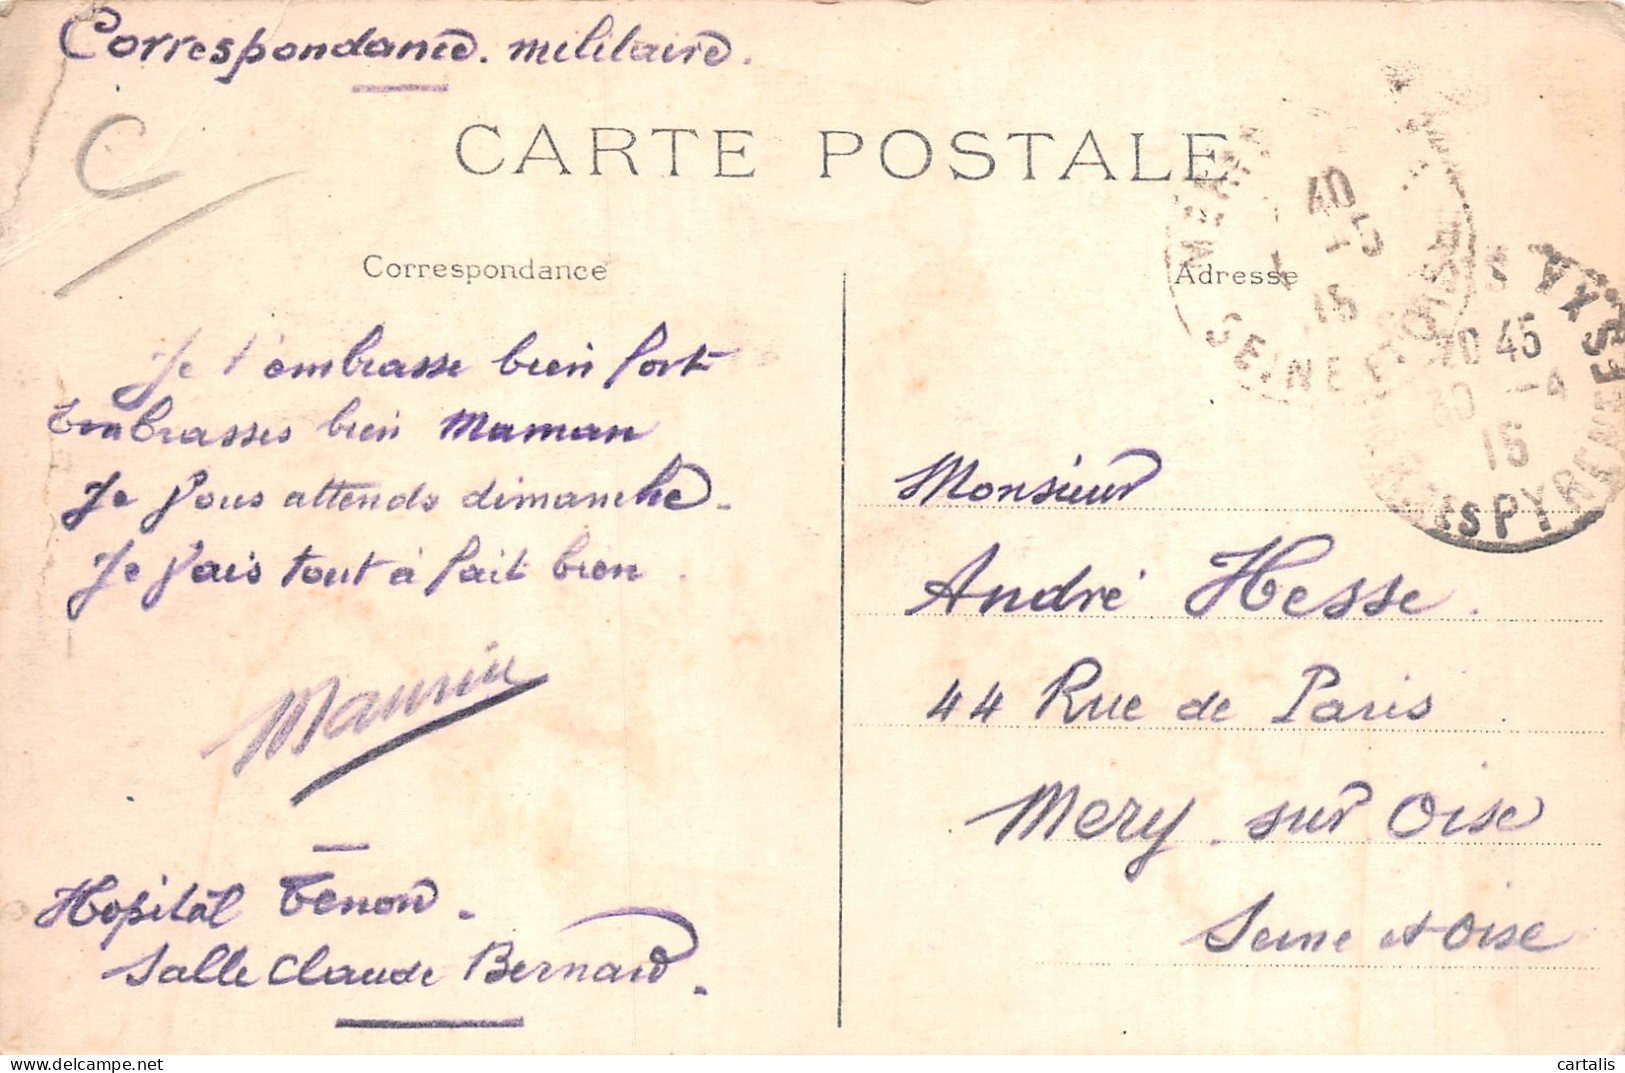 Correspondance. militaire.
C
CARTE POSTALE
Correspondance
Adresse
Je t'embrasse bien fort
Embrasses bien Maman
Je vous attends dimanche.
Je vais tout à fait bien.
Hopital Tenon.
Salle Claude Bernard.
Monsieur
André Hesse.
44 Rue de Paris
Mery. sur Oise
Seine et Oise
SEINE ET OISE
20 45
30 -4
15
SES PYRENEES
cartalis